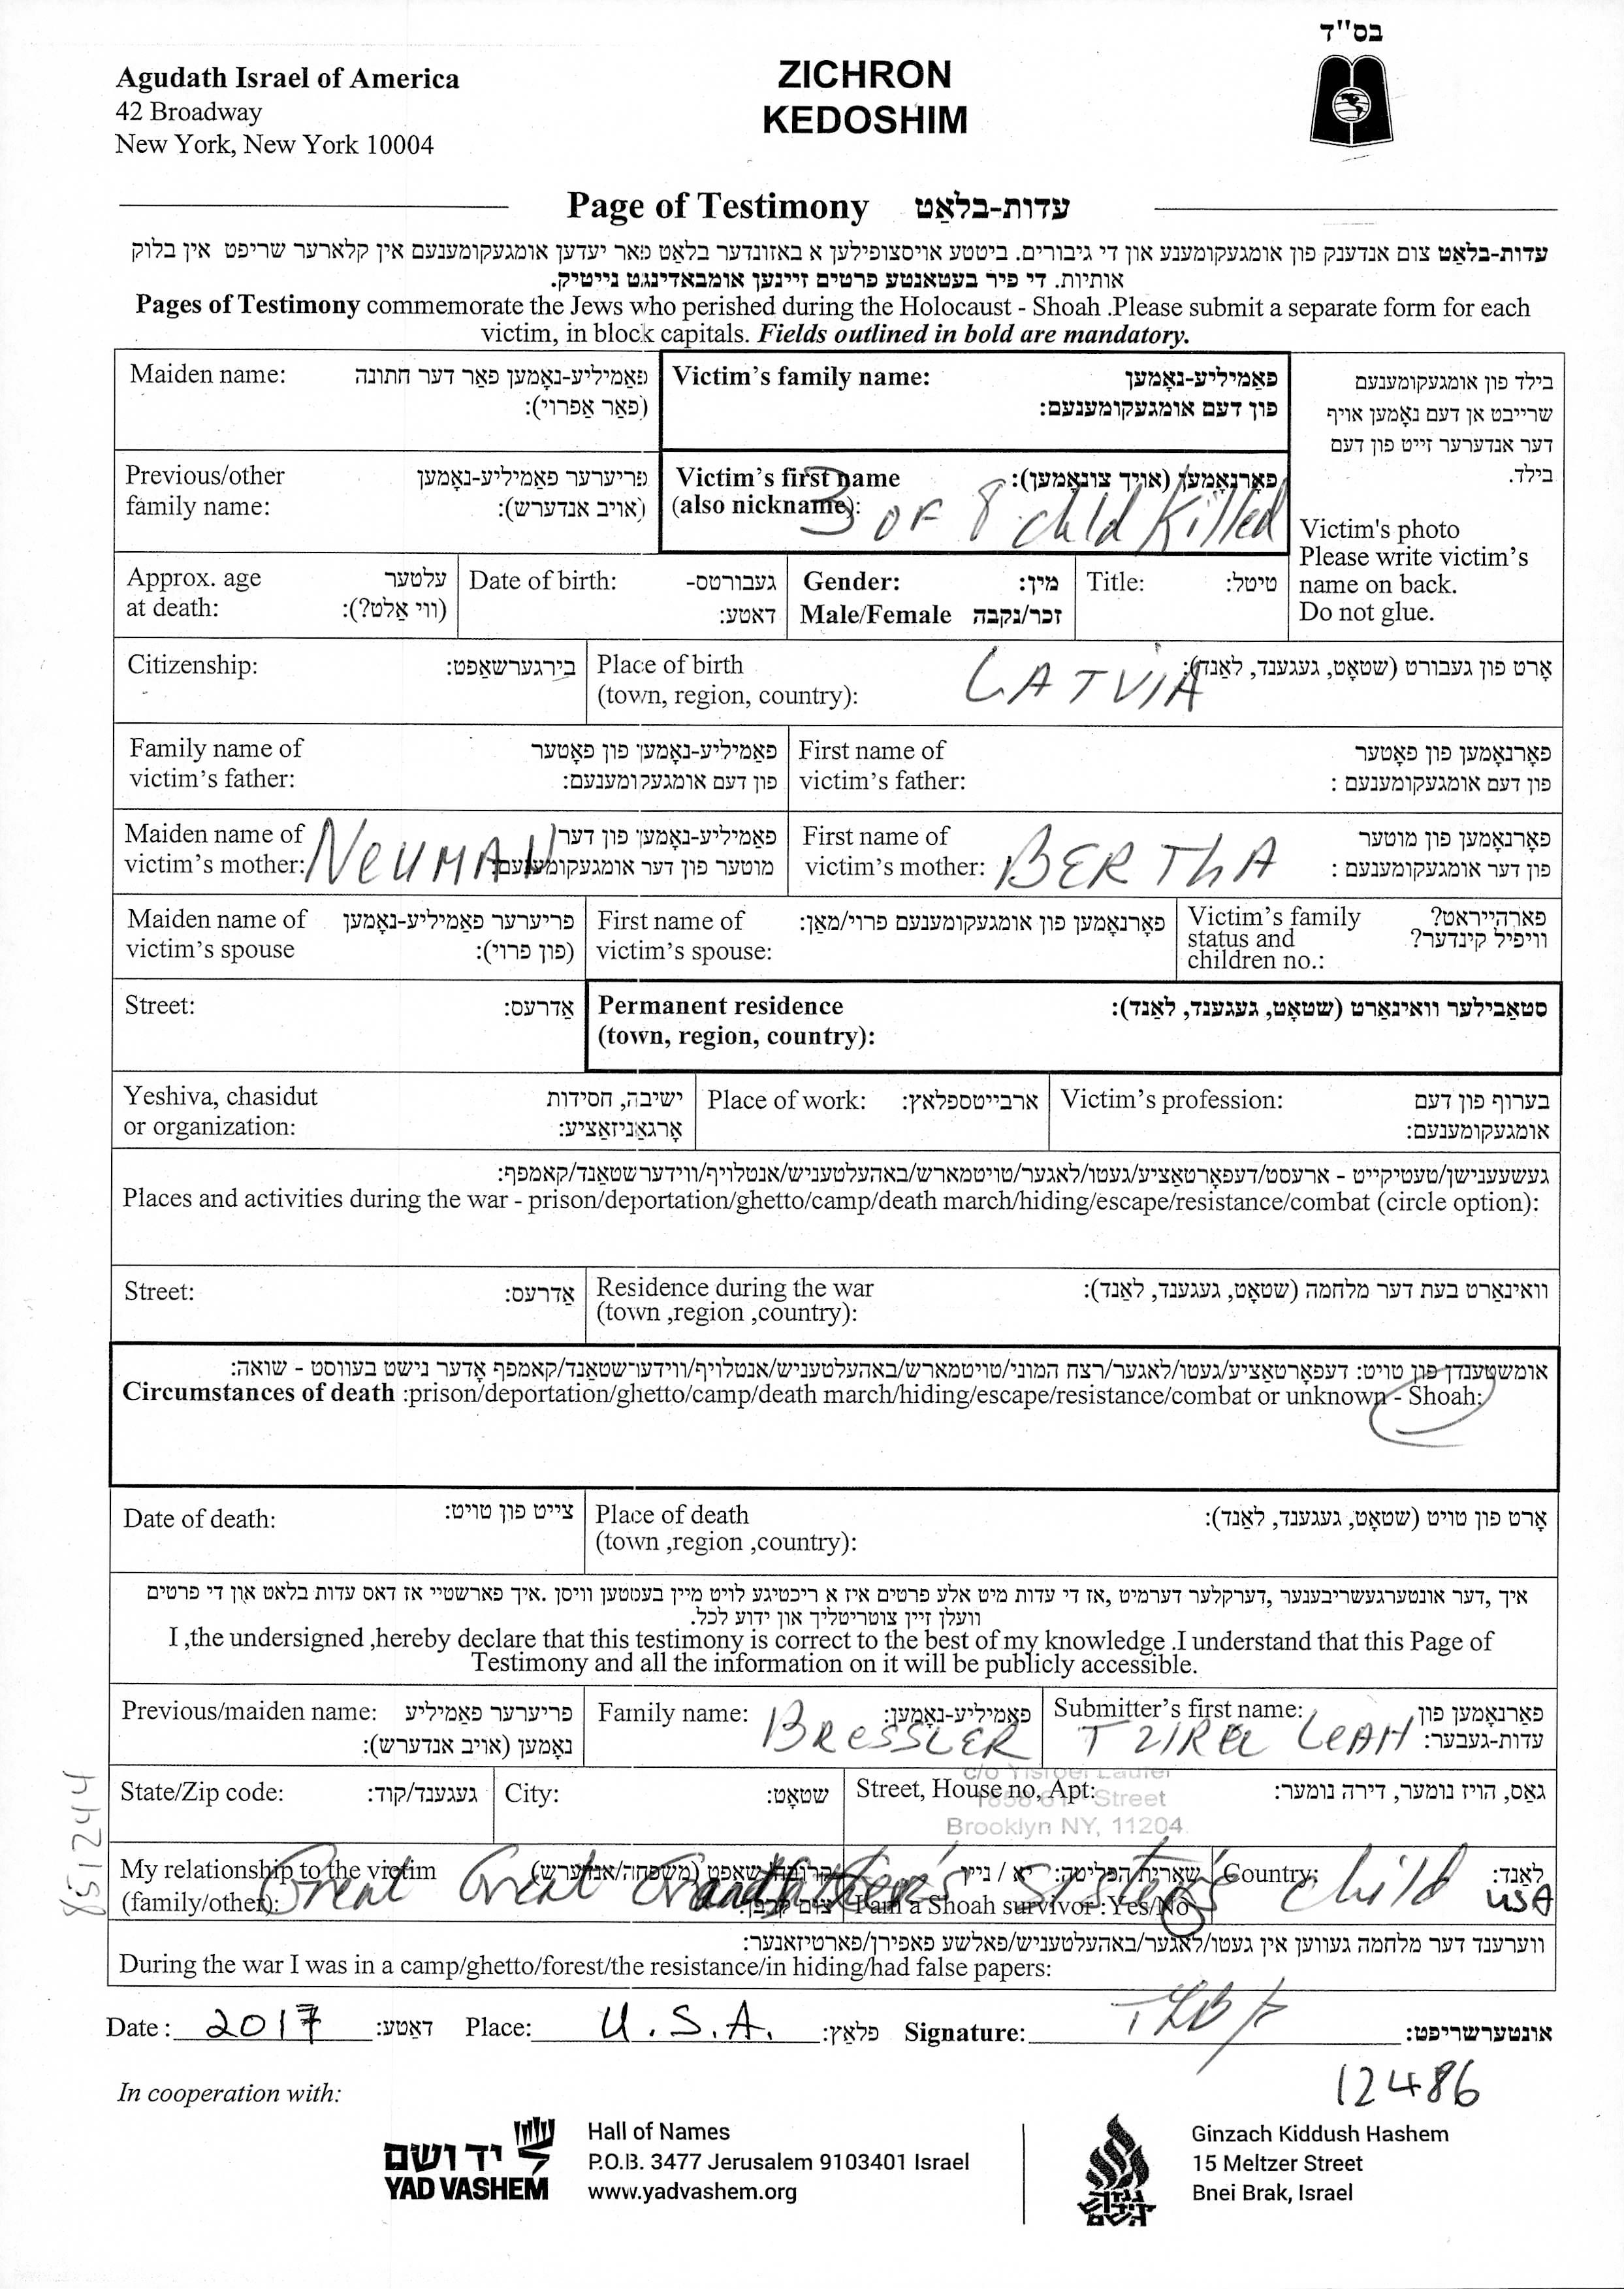 בס"ד
Agudath Israel of America
42 Broadway
New York, New York 10004
ZICHRON
KEDOSHIM
Page of Testimony עדות-בלאַט
עדות-בלאַט צום אנדענק פון אומגעקומענע און די גיבורים. ביטטע אויסצופילען א באזונדער בלאט פאר יעדען אומגעקומענעם אין קלארער שריפט אין בלוק
אותיות. די פיר בעטאנטע פרטים זיינען אומבאדינגט נייטיק.
Pages of Testimony commemorate the Jews who perished during the Holocaust - Shoah .Please submit a separate form for each
victim, in block capitals. Fields outlined in bold are mandatory.
Maiden name: פאַמיליע-נאָמען פאַר דער חתונה
(פאַר אַפרוי):
Victim's family name: פאַמיליע-נאָמען
פון דעם אומגעקומענעם:
בילד פון אומגעקומענעם
שרייבט אן דעם נאָמען אויף
דער אנדערער זייט פון דעם
בילד.
Victim's photo
Please write victim's
name on back.
Do not glue.
Previous/other פריערער פאַמיליע-נאָמען
family name: (אויב אנדערש):
Victim's first name פאָרנאָמען (אויך צונאָמען):
(also nickname):
3 OF 8 child Killed
Approx. age עלטער
at death: (ווי אַלט?):
Date of birth: געבורטס-
דאטע:
Gender: מין:
Male/Female זכר/נקבה
Title: טיטל:
Citizenship: בירגערשאַפט:
Place of birth אָרט פון געבורט (שטאָט, געגענד, לאַנד):
(town, region, country):
LATVIA
Family name of פאַמיליע-נאָמען פון פאָטער
victim's father: פון דעם אומגעקומענעם:
First name of פאָרנאָמען פון פאָטער
victim's father: פון דעם אומגעקומענעם :
Maiden name of פאַמיליע-נאָמען פון דער
victim's mother: מוטער פון דער אומגעקומענעם:
NEUMAN
First name of פאָרנאָמען פון מוטער
victim's mother: פון דער אומגעקומענעם :
BERTHA
Maiden name of פריערער פאַמיליע-נאָמען
victim's spouse (פון פרוי):
First name of פאָרנאָמען פון אומגעקומענעם פרוי/מאַן:
victim's spouse:
Victim's family פארהייראט?
status and וויפיל קינדער?
children no.:
Street: אַדרעס:
Permanent residence סטאַבילער וואינאַרט (שטאָט, געגענד, לאַנד):
(town, region, country):
Yeshiva, chasidut ישיבה, חסידות
or organization: אָרגאַניזאַציע:
Place of work: ארבייטספלאץ:
Victim's profession: בערוף פון דעם
אומגעקומענעם:
געשעענישן/טעטיקייט - ארעסט/דעפאָרטאַציע/געטו/לאגער/טויטמארש/באהעלטעניש/אנטלויף/ווידערשטאַנד/קאמפף:
Places and activities during the war - prison/deportation/ghetto/camp/death march/hiding/escape/resistance/combat (circle option):
Street: אַדרעס:
Residence during the war וואינאַרט בעת דער מלחמה (שטאָט, געגענד, לאַנד):
(town ,region ,country):
אומשטענדן פון טויט: דעפאָרטאַציע/געטו/לאגער/רצח המוני/טויטמארש/באהעלטעניש/אנטלויף/ווידערשטאַנד/קאמפף אָדער נישט בעוווסט - שואה:
Circumstances of death :prison/deportation/ghetto/camp/death march/hiding/escape/resistance/combat or unknown - Shoah:
Date of death: צייט פון טויט:
Place of death אָרט פון טויט (שטאָט, געגענד, לאַנד):
(town ,region ,country):
איך ,דער אונטערגעשריבענער ,דערקלער דערמיט ,אז די עדות מיט אלע פרטים איז א ריכטיגע לויט מיין בעסטען וויסן .איך פארשטיי אז דאס עדות בלאט און די פרטים
וועלן זיין צוטריטליך און ידוע לכל.
I ,the undersigned ,hereby declare that this testimony is correct to the best of my knowledge .I understand that this Page of
Testimony and all the information on it will be publicly accessible.
Previous/maiden name: פריערער פאַמיליע
נאָמען (אויב אנדערש):
Family name: פאַמיליע-נאָמען:
BRESSLER
Submitter's first name: פאַרנאָמען פון
עדות-געבער:
TZIREL LEAH
State/Zip code: געגענד/קוד:
City: שטאָט:
Street, House no, Apt: גאַס, הויז נומער, דירה נומער:
c/o Yisroel Laufer
Street
Brooklyn NY, 11204
851244
My relationship to the victim (משפחה/אנדערש)
(family/other):
Great Great Grandfather's sister's child
שארית הפליטה: יא / ניין
I am a Shoah survivor :Yes/No
Country: לאַנד:
USA
ווערענד דער מלחמה געווען אין געטו/לאַגער/באהעלטעניש/פאלשע פאפירן/פארטיזאנער:
During the war I was in a camp/ghetto/forest/the resistance/in hiding/had false papers:
Date : 2017 דאטע: Place: U.S.A. פלאץ: Signature: TLB אונטערשריפט:
12486
In cooperation with:
יד ושם
YAD VASHEM
Hall of Names
P.O.B. 3477 Jerusalem 9103401 Israel
www.yadvashem.org
גנזך
קידוש
השם
Ginzach Kiddush Hashem
15 Meltzer Street
Bnei Brak, Israel